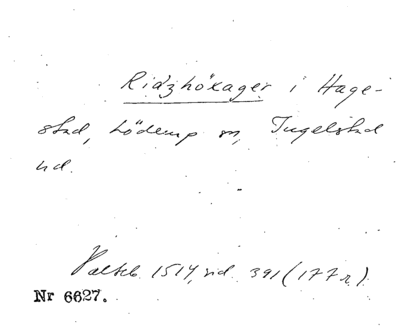 Ridzhöxager i Hage-
stad, Löderup sn, Ingelstad
hd.
Palteb 1514, sid 391 (177 r)
Nr 6627.